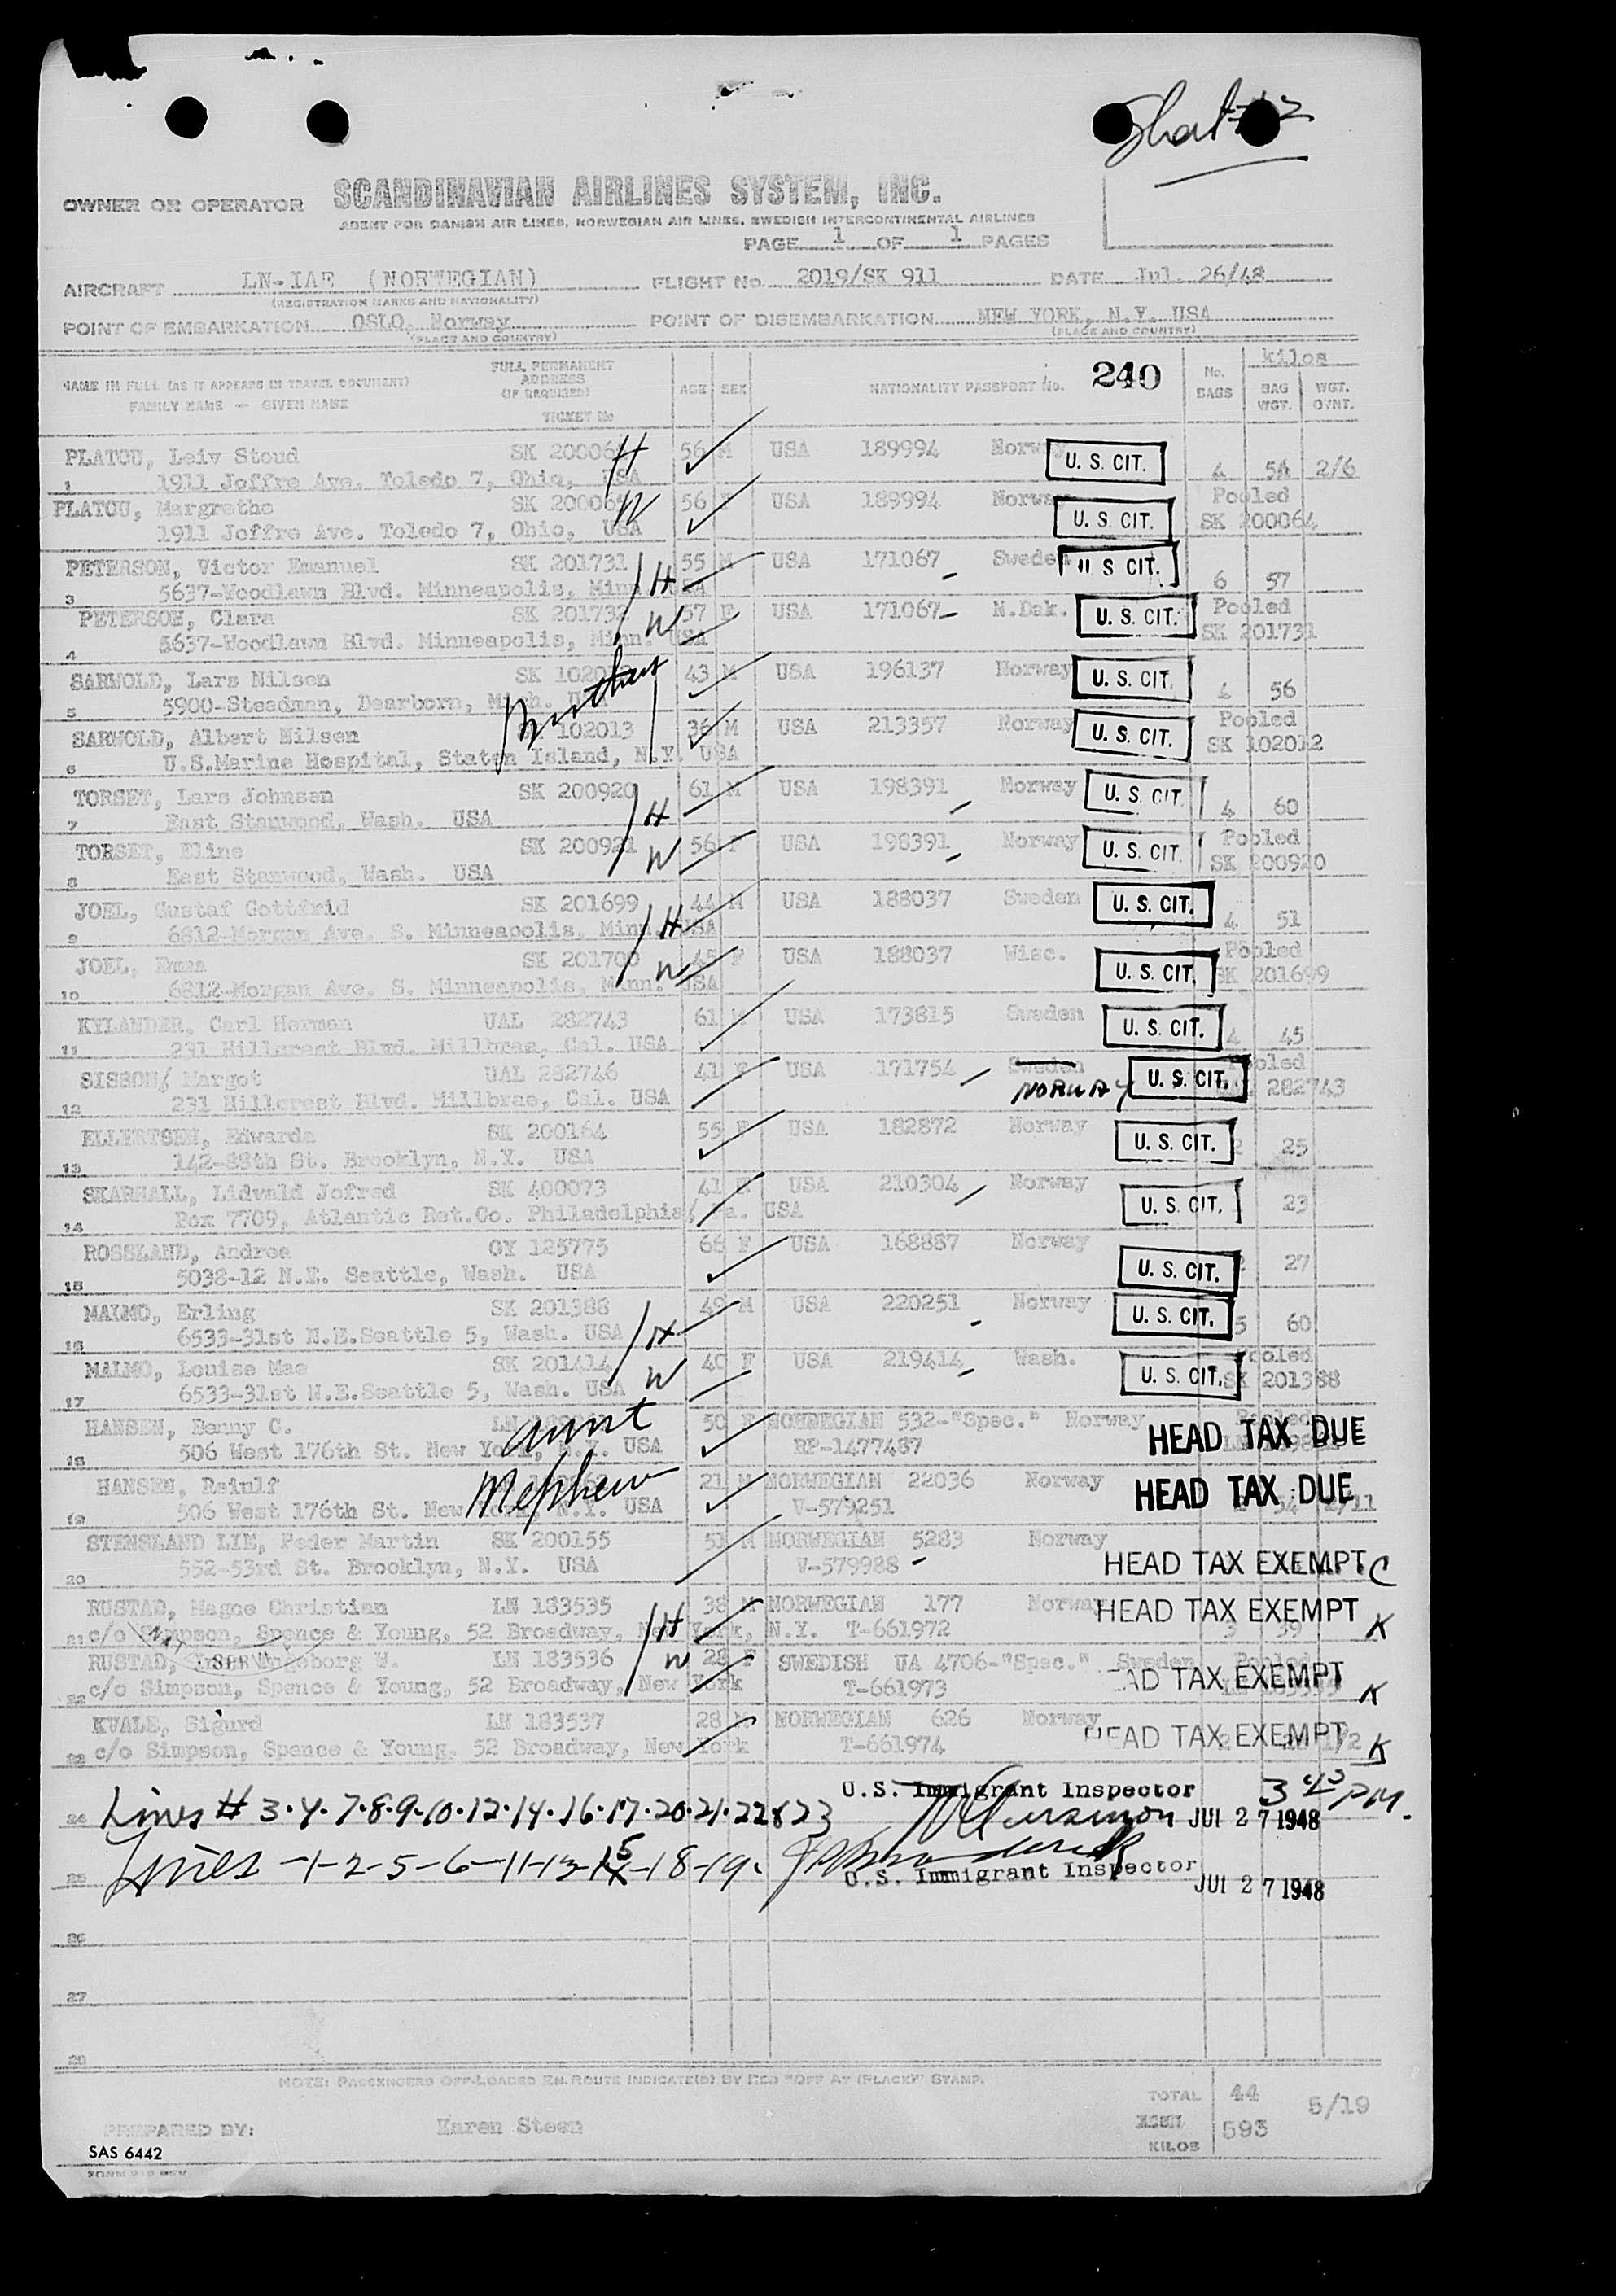 OWNER OR OPERATOR SCANDINAVIAN AIRLINES SYSTEM, INC.
AGENT FOR DANISH AIR LINES, NORWEGIAN AIR LINES, SWEDISH INTERCONTINENTAL AIRLINES
PAGE 1 OF 1 PAGES
AIRCRAFT LN-IAE (NORWEGIAN) FLIGHT No. 2019/SK 911 DATE Jul. 26/48
(REGISTRATION MARKS AND NATIONALITY)
POINT OF EMBARKATION OSLO, Norway POINT OF DISEMBARKATION NEW YORK, N.Y. USA
(PLACE AND COUNTRY) (PLACE AND COUNTRY)
NAME IN FULL (AS IT APPEARS IN TRAVEL DOCUMENT) FAMILY NAME — GIVEN NAME FULL PERMANENT ADDRESS (IF REQUIRED) TICKET No AGE SEX NATIONALITY PASSPORT No. 240 No. BAGS kilos BAG WGT. WGT. OVNT.
PLATOU, Leiv Stoud SK 200064 H 56 M USA 189994 Norway U. S. CIT. 4 54 2/6
1 1911 Joffre Ave. Toledo 7, Ohio, USA
PLATOU, Margrethe SK 200065 W 56 F USA 189994 Norway U. S. CIT. Pooled
1911 Joffre Ave. Toledo 7, Ohio, USA SK 200064
PETERSON, Victor Emanuel SK 201731 H 55 M USA 171067 Sweden U S CIT. 6 57
3 5637-Woodlawn Blvd. Minneapolis, Minn. USA
PETERSON, Clara SK 201732 W 57 F USA 171067 N.Dak. U. S. CIT. Pooled
4 5637-Woodlawn Blvd. Minneapolis, Minn. USA SK 201731
SARWOLD, Lars Nilsen SK 102012 Brothers 43 M USA 196137 Norway U. S. CIT. 4 56
5 5900-Steadman, Dearborn, Mich. USA
SARWOLD, Albert Nilsen 102013 36 M USA 213357 Norway U. S. CIT. Pooled
6 U.S.Marine Hospital, Staten Island, N.Y. USA SK 102012
TORSET, Lars Johnsen SK 200920 H 61 M USA 198391 Norway U. S. CIT. 4 60
7 East Stanwood, Wash. USA
TORSET, Eline SK 200921 W 56 F USA 198391 Norway U. S. CIT. Pooled
8 East Stanwood, Wash. USA SK 200920
JOEL, Gustaf Gottfrid SK 201699 H 44 M USA 188037 Sweden U. S. CIT. 4 51
9 6812-Morgan Ave. S. Minneapolis, Minn. USA
JOEL, Emma SK 201700 W 45 F USA 188037 Wisc. U. S. CIT. Pooled
10 6812-Morgan Ave. S. Minneapolis, Minn. USA SK 201699
KYLANDER, Carl Herman UAL 282743 61 M USA 173815 Sweden U. S. CIT. 4 45
11 231 Hillcrest Blvd. Millbrae, Cal. USA
SISSON/ Margot UAL 282746 41 F USA 171754 Sweden NORWAY U. S. CIT. Pooled
12 231 Hillcrest Blvd. Millbrae, Cal. USA 282743
ELLERTSEN, Edwarda SK 200164 55 F USA 182872 Norway U. S. CIT. 2 25
13 142-88th St. Brooklyn, N.Y. USA
SKARHALL, Lidvald Jofred SK 400073 41 M USA 210304 Norway U. S. CIT. 23
14 Box 7709, Atlantic Ret.Co. Philadelphia, Pa. USA
ROSSLAND, Andrea OY 125775 66 F USA 168887 Norway U. S. CIT. 27
15 5038-12 N.E. Seattle, Wash. USA
MALMO, Erling SK 201388 H 49 M USA 220251 Norway U. S. CIT. 5 60
16 6533-31st N.E.Seattle 5, Wash. USA
MALMO, Louise Mae SK 201414 W 40 F USA 219414 Wash. U. S. CIT. Pooled
17 6533-31st N.E.Seattle 5, Wash. USA SK 201388
HANSEN, Benny C. LN aunt 50 F NORWEGIAN 532-"Spec." Norway HEAD TAX DUE Pooled
18 506 West 176th St. New York, N.Y. USA RP-1477487
HANSEN, Reinlf Nephew 21 M NORWEGIAN 22036 Norway HEAD TAX DUE
19 506 West 176th St. New York, N.Y. USA V-579251
STENSLAND LIE, Peder Martin SK 200155 51 M NORWEGIAN 5283 Norway HEAD TAX EXEMPT C
20 552-53rd St. Brooklyn, N.Y. USA V-579988
RUSTAD, Magne Christian LN 183535 H 38 M NORWEGIAN 177 Norway HEAD TAX EXEMPT K
21 c/o Simpson, Spence & Young, 52 Broadway, New York, N.Y. T-661972 3 39
RUSTAD, Ingeborg W. LN 183536 W 28 F SWEDISH UA 4706-"Spec." Sweden HEAD TAX EXEMPT K
22 c/o Simpson, Spence & Young, 52 Broadway, New York T-661973
KVALE, Sigurd LN 183537 28 M NORWEGIAN 626 Norway HEAD TAX EXEMPT K
23 c/o Simpson, Spence & Young, 52 Broadway, New York T-661974
U.S. Immigrant Inspector 3 45 PM.
24 Lines # 3·4·7·8·9·10·12·14·16·17·20·21·22&23 JUL 27 1948
25 Lines -1-2-5-6-11-13-15-18-19.
U.S. Immigrant Inspector JUL 27 1948
26
27
28
NOTE: PASSENGERS OFF-LOADED EN ROUTE INDICATE(D) BY RED "OFF AT (PLACE)" STAMP.
TOTAL 44 5/19
PREPARED BY: Karen Steen 593
KILOS
SAS 6442